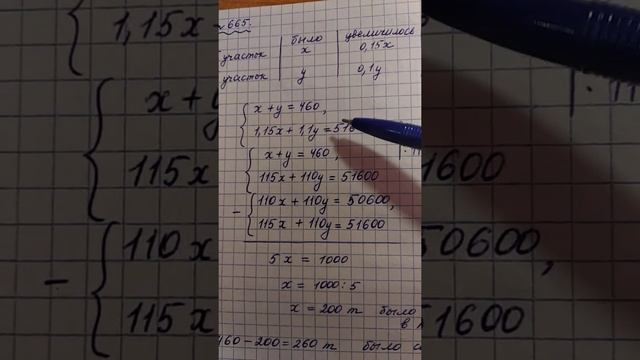 №665.
было | увеличилось
участок | x | 0,15x
участок | y | 0,1y
x + y = 460,
1,15x + 1,1y = 516
x + y = 460,
115x + 110y = 51600
− 110x + 110y = 50600,
115x + 110y = 51600
5x = 1000
x = 1000:5
x = 200 т было
в
460 − 200 = 260 т было
1,15x
x + y
115x
− 110x
115x
50600,
1600